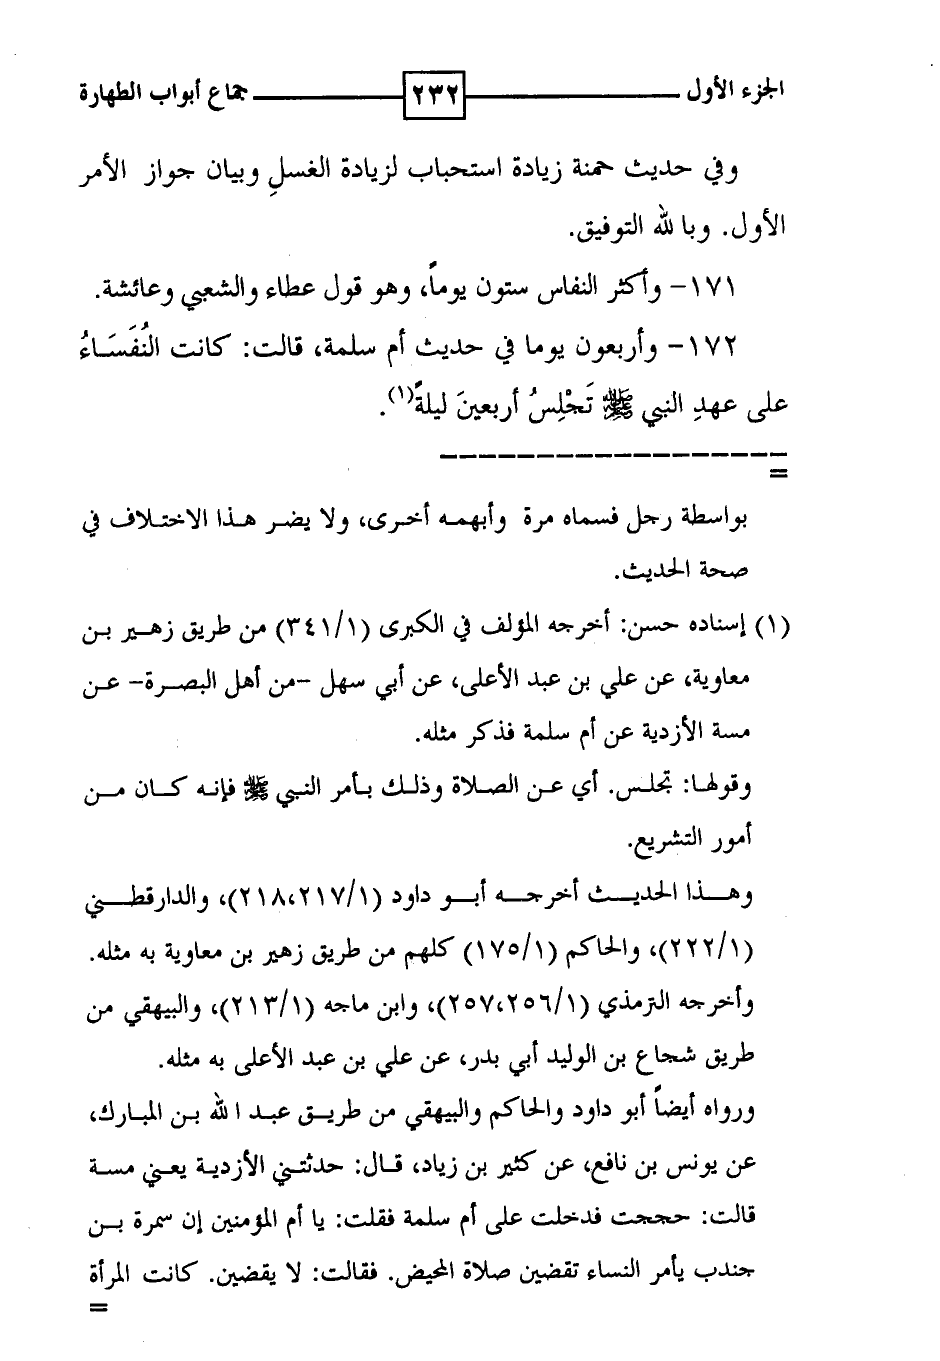 الجزء الأول ٢٣٢ جماع أبواب الطهارة
وفي حديث حمنة زيادة استحباب لزيادة الغسلِ وبيان جواز الأمر
الأول. وبا لله التوفيق.
١٧١- وأكثر النفاس ستون يوماً، وهو قول عطاء والشعبي وعائشة.
١٧٢- وأربعون يوما في حديث أم سلمة، قالت: كانت النُفَسَاءُ
على عهدِ النبي ﷺ تَجْلِسُ أربعينَ ليلةً(١).
=
بواسطة رجل فسماه مرة وأبهمه أخرى، ولا يضر هذا الاختلاف في
صحة الحديث.
(١) إسناده حسن: أخرجه المؤلف في الكبرى (٣٤١/١) من طريق زهير بن
معاوية، عن علي بن عبد الأعلى، عن أبي سهل -من أهل البصرة- عن
مسة الأزدية عن أم سلمة فذكر مثله.
وقولها: تجلس. أي عن الصلاة وذلك بأمر النبي ﷺ فإنه كان من
أمور التشريع.
وهذا الحديث أخرجه أبو داود (٢١٨،٢١٧/١)، والدارقطني
(٢٢٢/١)، والحاكم (١٧٥/١) كلهم من طريق زهير بن معاوية به مثله.
وأخرجه الترمذي (٢٥٧،٢٥٦/١)، وابن ماجه (٢١٣/١)، والبيهقي من
طريق شجاع بن الوليد أبي بدر، عن علي بن عبد الأعلى به مثله.
ورواه أيضاً أبو داود والحاكم والبيهقي من طريق عبد الله بن المبارك،
عن يونس بن نافع، عن كثير بن زياد، قال: حدثتني الأزدية يعني مسة
قالت: حججت فدخلت على أم سلمة فقلت: يا أم المؤمنين إن سمرة بن
جندب يأمر النساء تقضين صلاة المحيض. فقالت: لا يقضين. كانت المرأة
=